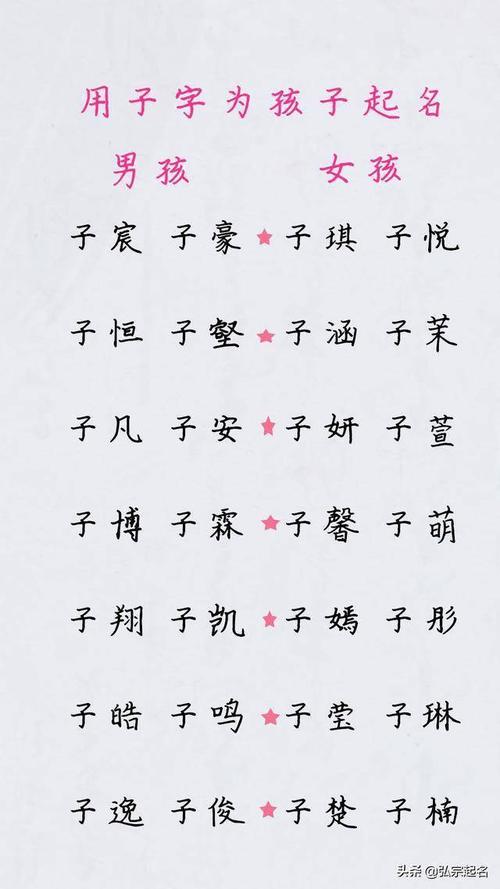 用子字为孩子起名
男孩 女孩
子宸 子豪 ★ 子琪 子悦
子恒 子壑 ★ 子涵 子茉
子凡 子安 ★ 子妍 子萱
子博 子霖 ★ 子馨 子萌
子翔 子凯 ★ 子嫣 子彤
子皓 子鸣 ★ 子莹 子琳
子逸 子俊 ★ 子楚 子楠
头条 @弘宗起名